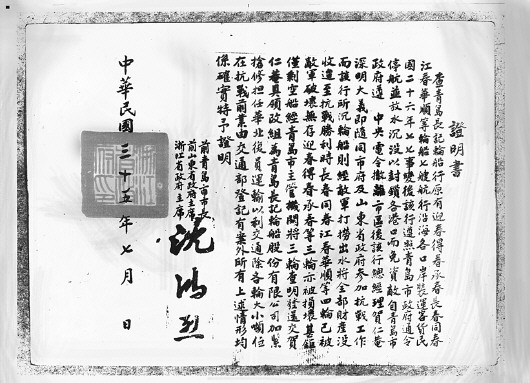 證明書
查青島長記輪船行原有迎春得春承春長春同春
江春華順等輪船七艘航行沿海各口岸裝運客貨民
國二十六年七七事變後該行遵照青島市政府通令
停航並放水沉沒以封鎖各港口而免資敵自青島市
政府遵 中央電令撤離市區後該行總經理賀仁菴
深明大義即隨同市府及山東省政府參加抗戰工作
而該行所沉輪船則經敵軍打撈出水將全部財產沒
收迨至抗戰勝利時長春同春江春華順等四輪已被
敵軍破壞無存迎春得春承春等三輪亦被損壞甚鉅
僅剩空船經青島市主管機關將三輪查明發還交賀
仁菴具領改組為青島長記輪船股份有限公司加緊
搶修担任華北後員運輸以利交通除各輪大小噸位
在抗戰前業由交通部登記有案外所有上述情形均
係確實特予證明
前青島市市長
前山東省政府主席
浙江省政府主席
沈鴻烈
中華民國三十五年七月 日